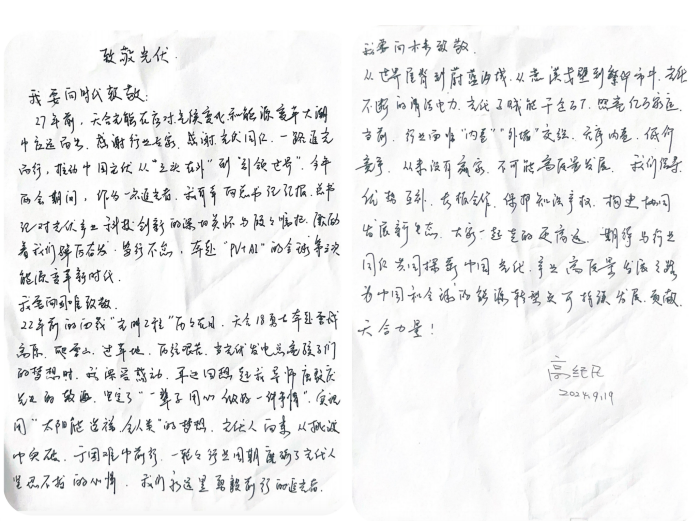 致敬光伏
我要向时代致敬:
27年前,天合光能在应对气候变化和能源变革大潮
中应运而生。感谢行业专家、感谢光伏同仁,一路追光
而行,推动中国光伏从“三头在外”到“引领世界”。今年
两会期间,作为一名追光者,我有幸向总书记汇报,总书
记对光伏产业科技创新的深切关怀与殷殷嘱托,激励
着我们踔厉奋发、笃行不怠,奔赴“PV+AI”的全球第三次
能源变革新时代。
我要向困难致敬
22年前的西藏“光明工程”历历在目,天合18勇士奔赴雪域
高原,爬雪山、过草地,历经艰苦。当光伏发电点亮孩子们
的梦想时,我深受感动,耳边回想起我导师唐敖庆
先生的教诲,坚定了“一辈子用心做好一件事情”,实现
用“太阳能造福全人类”的梦想。光伏人向来从挑战
中突破,于困难中前行,一轮轮行业周期磨砺了光伏人
坚忍不拔的心情,我们永远是勇毅前行的追光者。
我要向未来致敬
从世界屋脊到蔚蓝海域,从荒漠戈壁到繁华都市,光伏
不断的清洁电力,光伏赋能千行百业,照亮亿万家庭。
当前,行业面临“内卷”“外堵”交织,无序内卷,低价
竞争,从来没有赢家,不可能高质量发展。我们保持
优势,大抓合作、保护知识产权,构建协同
发展新生态。大家一起走的更高远。期待与行业
同仁共同探索中国光伏产业高质量发展之路
为中国和全球的能源转型与可持续发展,贡献
天合力量!
高纪凡
2024.9.19